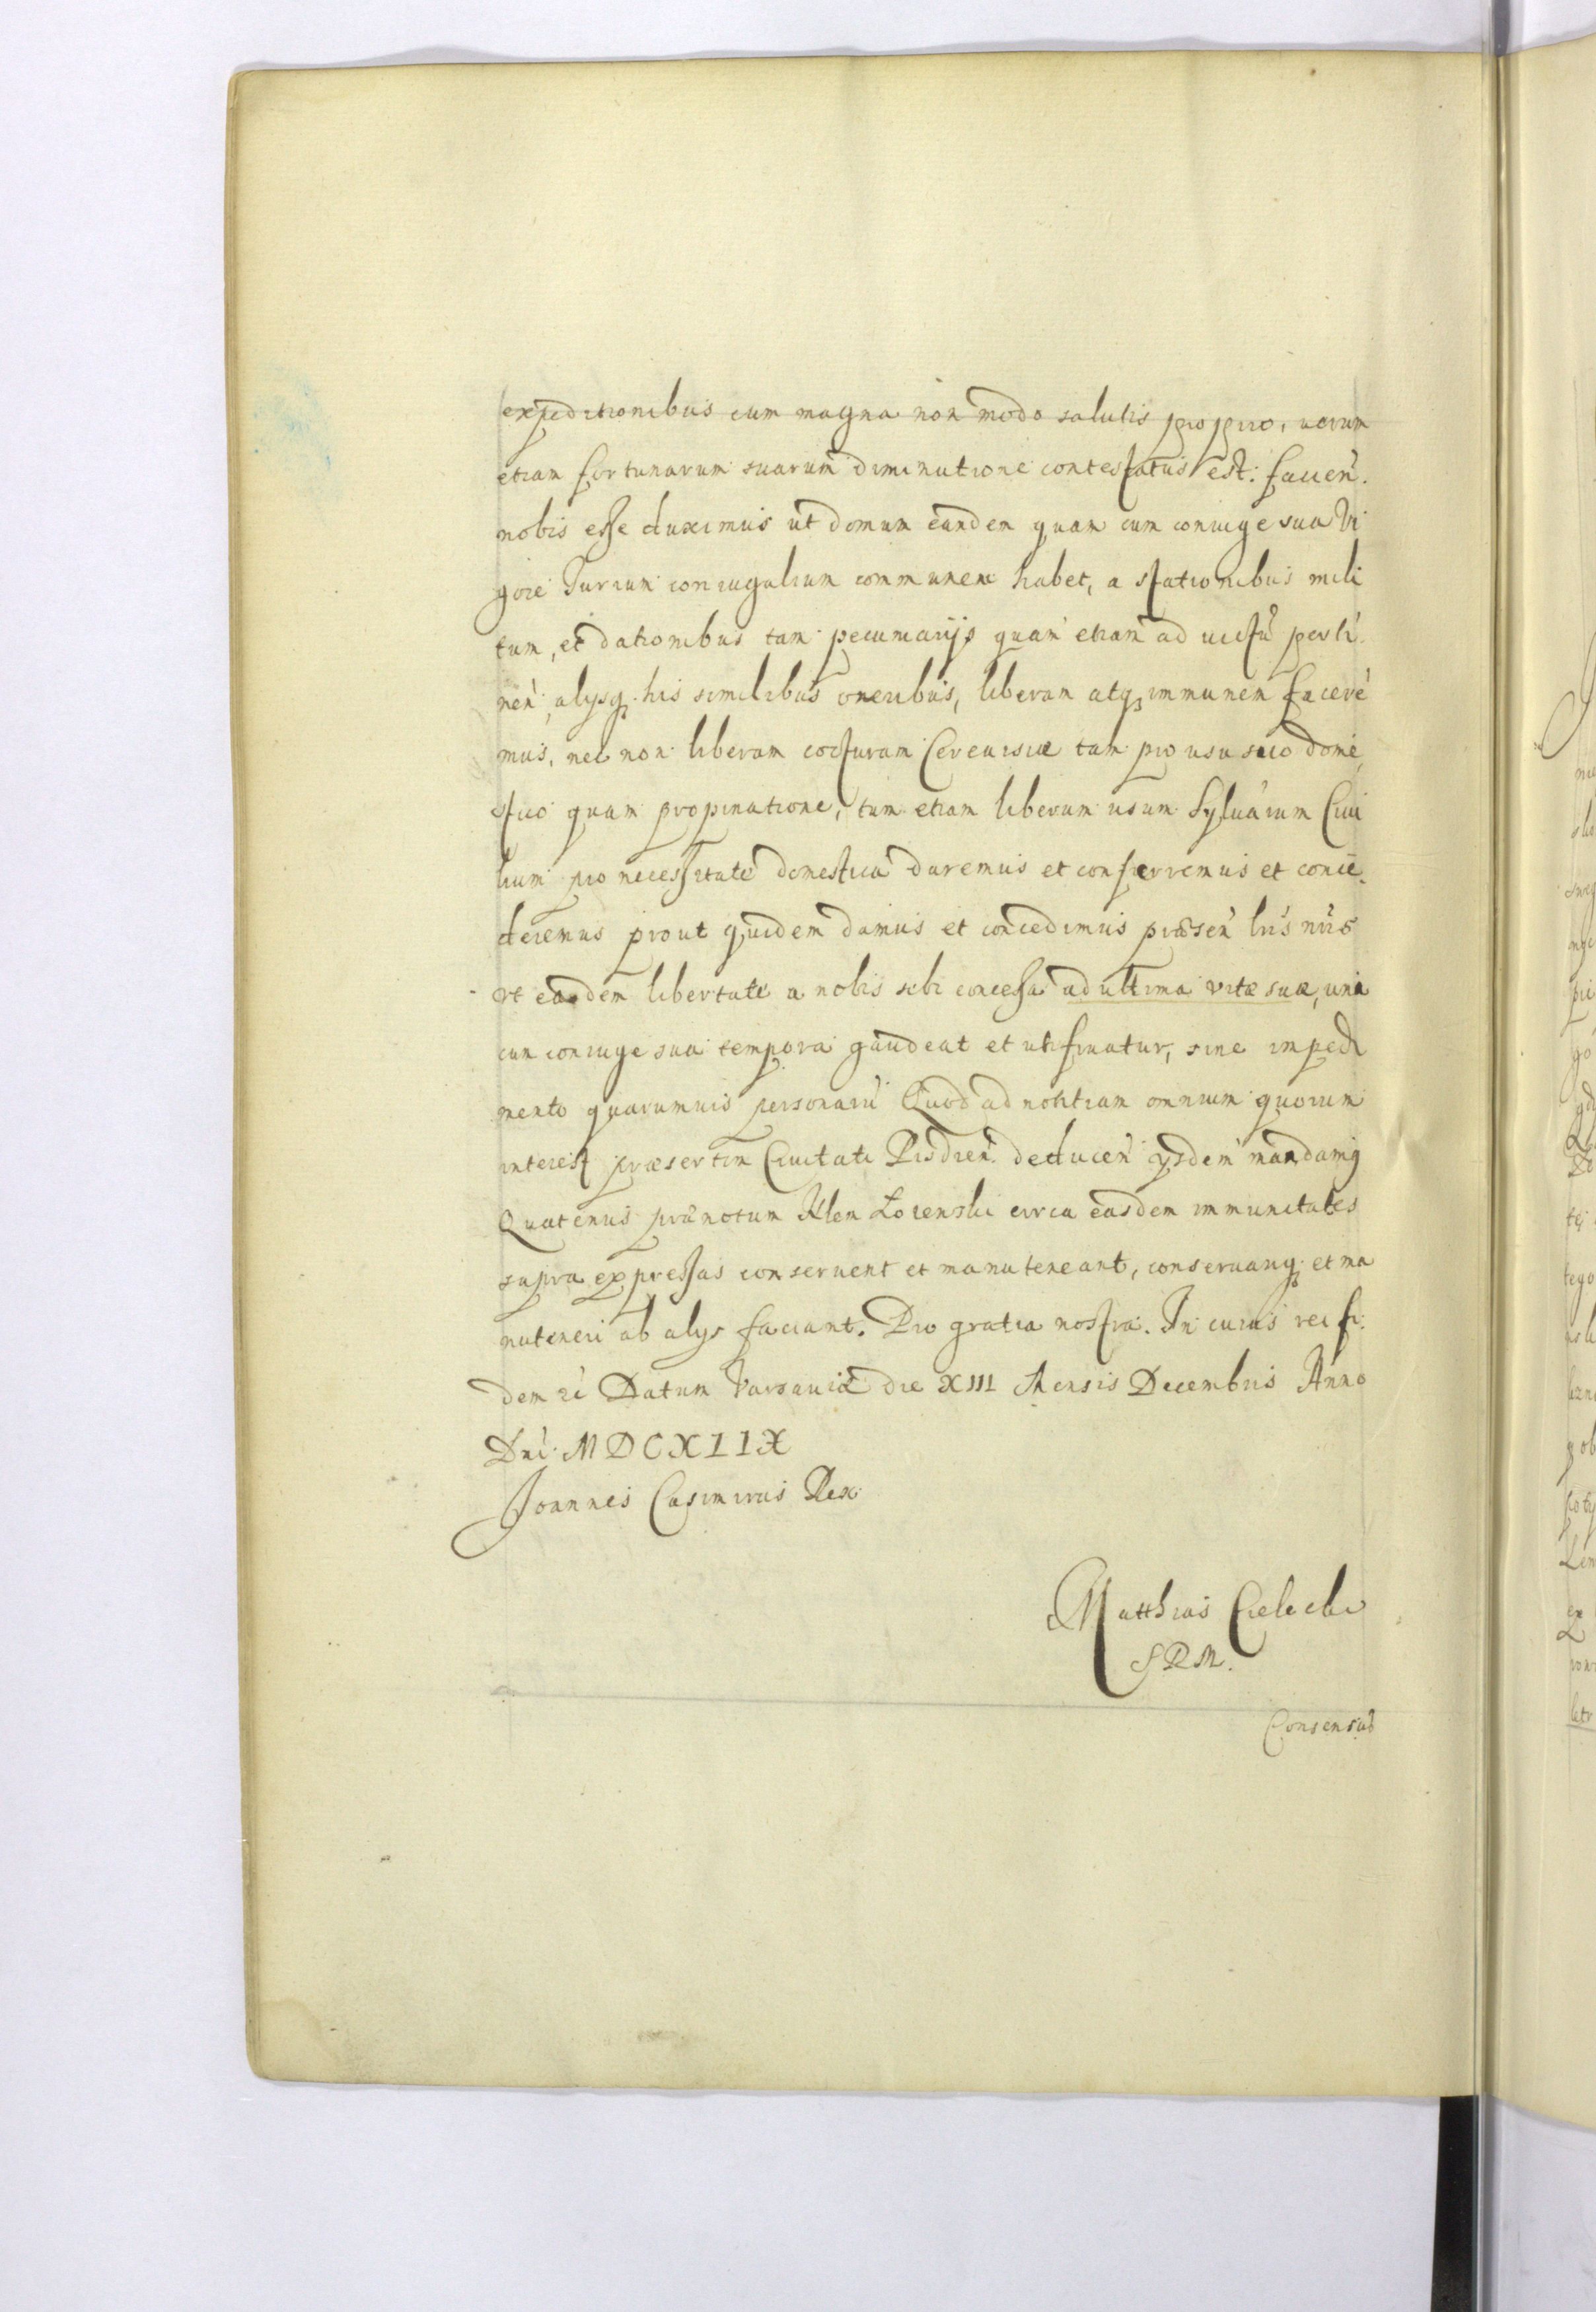 expeditionibus cum magna non modo salutis propriæ, verum
etiam fortunarum suarum diminutione contestatus est. facien.
nobis esse duximus ut domum eandem quam cum coniuge sua Vi
gore Jurium coniugalium communem habet, a stationibus mili
tum, et dationibus tam pecuniarijs quam etiam ad victũ perti
neñ, alijsq. his similibus oneribus, liberam atq immunem facere
mus, nec non liberam cocturam Cerevisiæ tam pro usu suo dome
stico quam propinatione, tum etiam liberum usum Sylvarum Civi
lium pro necessitate domestica daremus et conferremus et conce
deremus prout quidem damus et concedimus præseñ lris nris
vt eadem libertate a nobis sibi concessa ad ultima vitæ suæ, una
cum coniuge sua tempora gaudeat et utifruatur, sine impedi
mento quarumvis personarũ Quod ad notitiam omnium quorum
interest præsertim Civitati Pisdreñ. deduceñ ijsdem mandamq
Quatenus prænotum Klem Lorenski circa easdem immunitates
supra expressas conservent et manuteneant, conservariq. et ma
nuteneri ab alijs faciant. Pro gratia nostra. In cuius rei fi.
dem &c Datum Varsaviæ die XIII Mensis Decembris Anno
Dni. MDCXLIX
Joannes Casimirus Rex
Matthias Cielecki
S R M.
Consensus